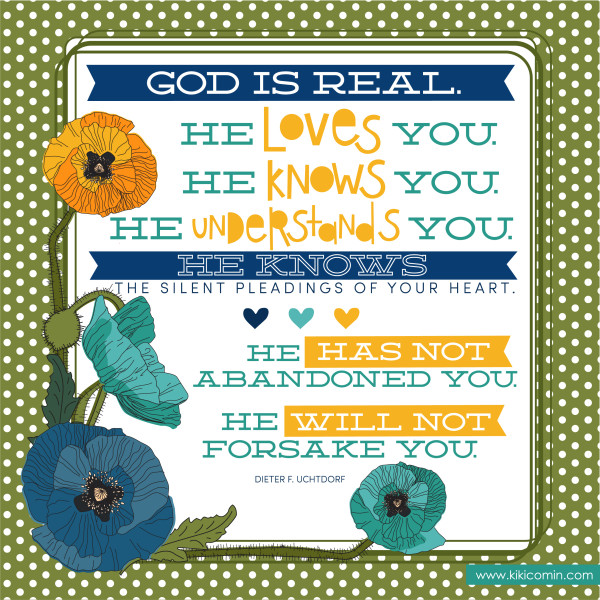 GOD IS REAL.
HE Loves YOU.
HE KNOWS YOU.
HE UNDERSTANDS YOU.
HE KNOWS
THE SILENT PLEADINGS OF YOUR HEART.
HE HAS NOT
ABANDONED YOU.
HE WILL NOT
FORSAKE YOU.
DIETER F. UCHTDORF
www.kikicomin.com